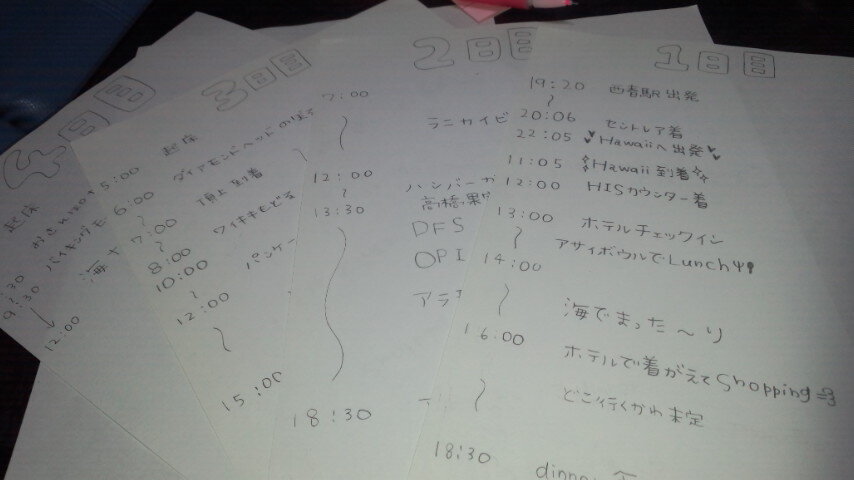 1日目
19:20 西春駅出発
〜
20:06 セントレア着
22:05 Hawaiiへ出発
11:05 Hawaii到着
12:00 HISカウンター着
13:00 ホテルチェックイン
〜 アサイボウルでLunch
14:00
〜 海でまった〜り
16:00 ホテルで着がえてShopping
〜 どこ行くかわ未定
18:30
2日目
7:00
〜 ラニカイビ
12:00 ハンバーガ
〜 高橋果
13:30
DFS
〜 OPI
アラ
18:30
3日目
5:00 起床
6:00 ダイアモンドヘッドのぼる
〜
7:00 頂上到着
〜
8:00 ワイキキもどる
10:00 パンケー
〜
12:00
〜
15:00
4日目
起床
バイキング
9:30
↓
12:00 海